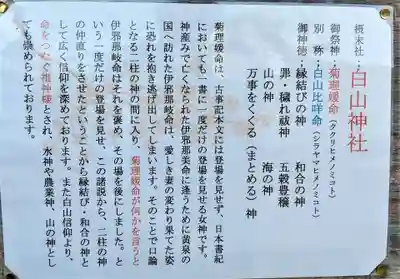 摂末社：白山神社
御祭神：菊理媛命（ククリヒメノミコト）
別　称：白山比咩命（シラヤマヒメノミコト）
御神徳：縁結びの神　和合の神
罪・穢れ祓神　五穀豊穣
山の神　海の神
万事をくくる（まとめる）神
菊理媛命は、古事記本文には登場を見せず、日本書紀
においても一書に一度だけの登場を見せる女神です。
神産みで亡くなられた伊邪那美命に逢うために黄泉の
国へ訪れた伊邪那岐命は、愛しき妻の変わり果てた姿
に恐れを抱き逃げ出してしまいます。そのことで口論
となる二柱の神の間に入り、菊理媛命が何かを言うと
伊邪那岐命はそれを褒め、その場を後にしました。と
いう一度だけの登場を見せ、この諸説から、二柱の神
の仲直りをさせたということから縁結び・和合の神と
して広く信仰を深めております。また白山信仰より、
命をつなぐ祖神様とされ、水神や農業神、山の神とし
ても崇められております。